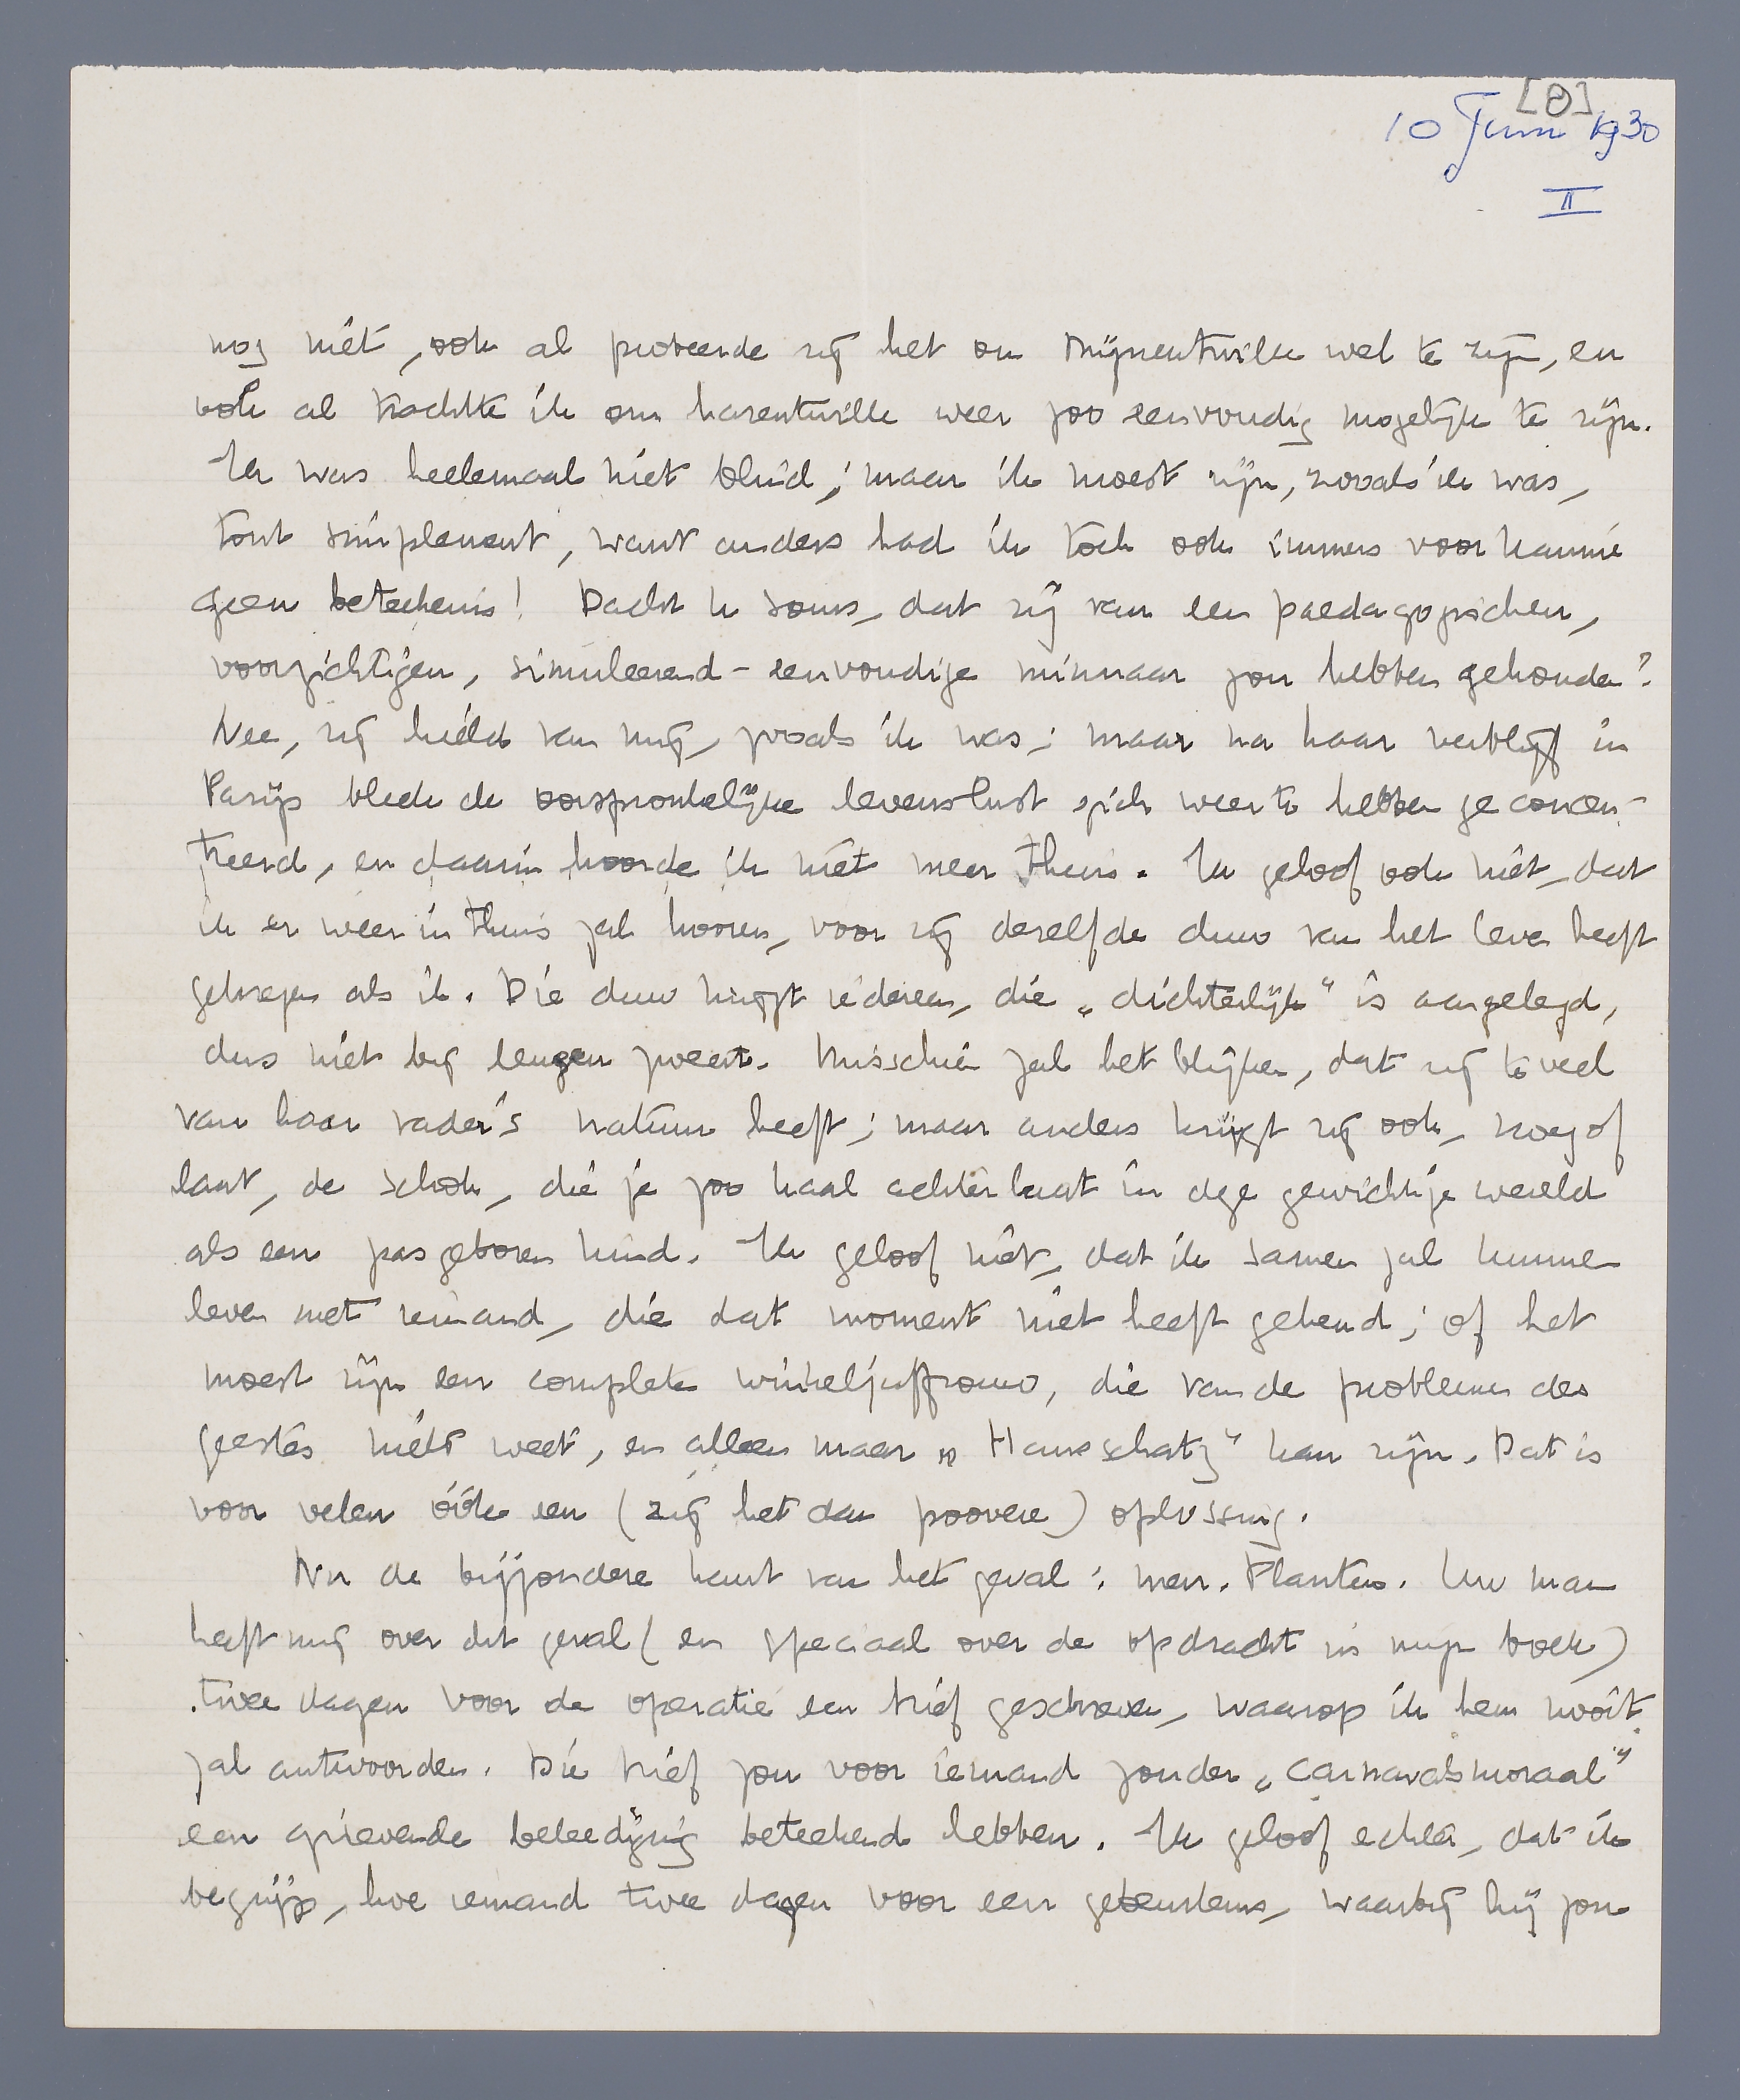 [8]
10 Juni 1930
II
nog niet, ook al probeerde zij het om mijnentwille wel te zijn, en
ook al trachtte ik om harentwille weer zoo eenvoudig mogelijk te zijn.
Ik was heelemaal niet blind; maar ik moest zijn, zooals ik was,
tout simplement, want anders had ik toch ook immers voor hannie
geen beteekenis! Dacht U soms, dat zij van een paedagogischen,
voorzichtigen, simuleerend-eenvoudige minnaar zou hebben gehouden?
Nee, zij hield van mij, zooals ik was; maar na haar verblijf in
Parijs bleek de oorspronkelijke levenslust zich weer te hebben geconcen-
treerd, en daarin hoorde ik niet meer thuis. Ik geloof ook niet, dat
ik er weer in thuis zal hooren, voor zij dezelfde duw van het leven heeft
gekregen als ik. Die duw krijgt iedereen, die „dichterlijk" is aangelegd,
dus niet bij leugen zweert. Misschien zal het blijken, dat zij te veel
van haar vader's natuur heeft; maar anders krijgt zij ook, vroeg of
laat, de schok, die je zoo kaal achterlaat in deze gewichtige wereld
als een pasgeboren kind. Ik geloof niet, dat ik samen zal kunnen
leven met iemand, die dat moment niet heeft gekend; of het
moest zijn een complete winkeljuffrouw, die van de problemen des
geestes niets weet, en alleen maar „Hausschatz" kan zijn. Dat is
voor velen óók een (zij het dan poovere) oplossing.
Nu de bijzondere kant van het geval: mevr. Planten. Uw man
heeft mij over dit geval (en speciaal over de opdracht in mijn boek)
twee dagen voor de operatie een brief geschreven, waarop ik hem nooit
zal antwoorden. Die brief zou voor iemand zonder „carnavalsmoraal"
een grievende beleediging beteekend hebben. Ik geloof echter, dat ik
begrijp, hoe iemand twee dagen voor een gebeurtenis, waarbij hij zou